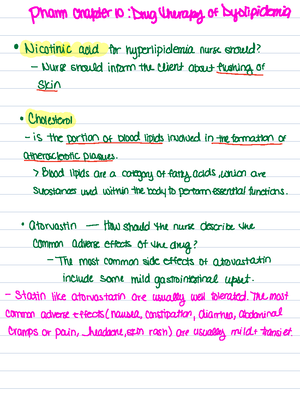 Pharm Chapter 10: Drug Therapy of Dyslipidemia
• Nicotinic acid for hyperlipidemia nurse should?
- Nurse should inform the client about flushing of
skin
• Cholesterol
- is the portion of blood lipids involved in the formation of
atherosclerotic plaques.
> Blood lipids are a category of fatty acids, which are
substances used within the body to perform essential functions.
• Atorvastin — How should the nurse describe the
common adverse effects of the drug?
- The most common side effects of atorvastatin
include some mild gastrointestinal upset.
- Statin like atorvastatin are usually well tolerated. The most
common adverse effects (nausea, constipation, diarrhea, abdominal
cramps or pain, headache, skin rash) are usually mild + transient.